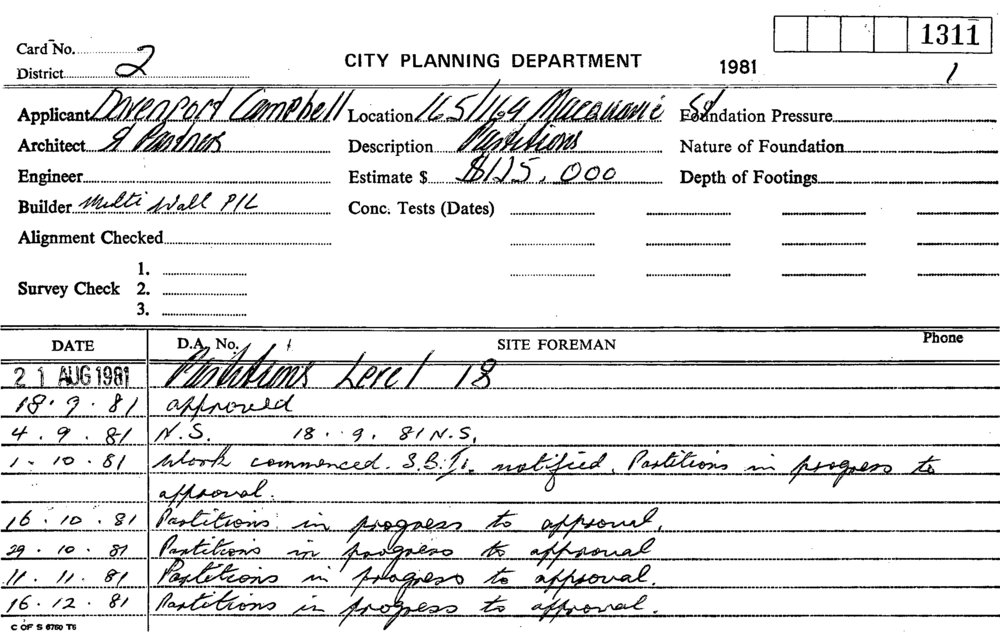 1311
Card No. 2
District
CITY PLANNING DEPARTMENT
1981
1
Applicant Davenport Campbell Location 165/169 Macquarie St Foundation Pressure
Architect & Partners Description Partitions Nature of Foundation
Engineer Estimate $ $125,000 Depth of Footings
Builder Multi Wall P/L Conc. Tests (Dates)
Alignment Checked
1.
Survey Check 2.
3.
DATE D.A. No. SITE FOREMAN Phone
21 AUG 1981 Partitions Level 18
18.9.81 approved
4.9.81 N.S. 18.9.81 N.S.
1.10.81 Work commenced. notified. Partitions in progress to
approval.
16.10.81 Partitions in progress to approval.
29.10.81 Partitions in progress to approval
11.11.81 Partitions in progress to approval.
16.12.81 Partitions in progress to approval.
C OF S 6760 T6